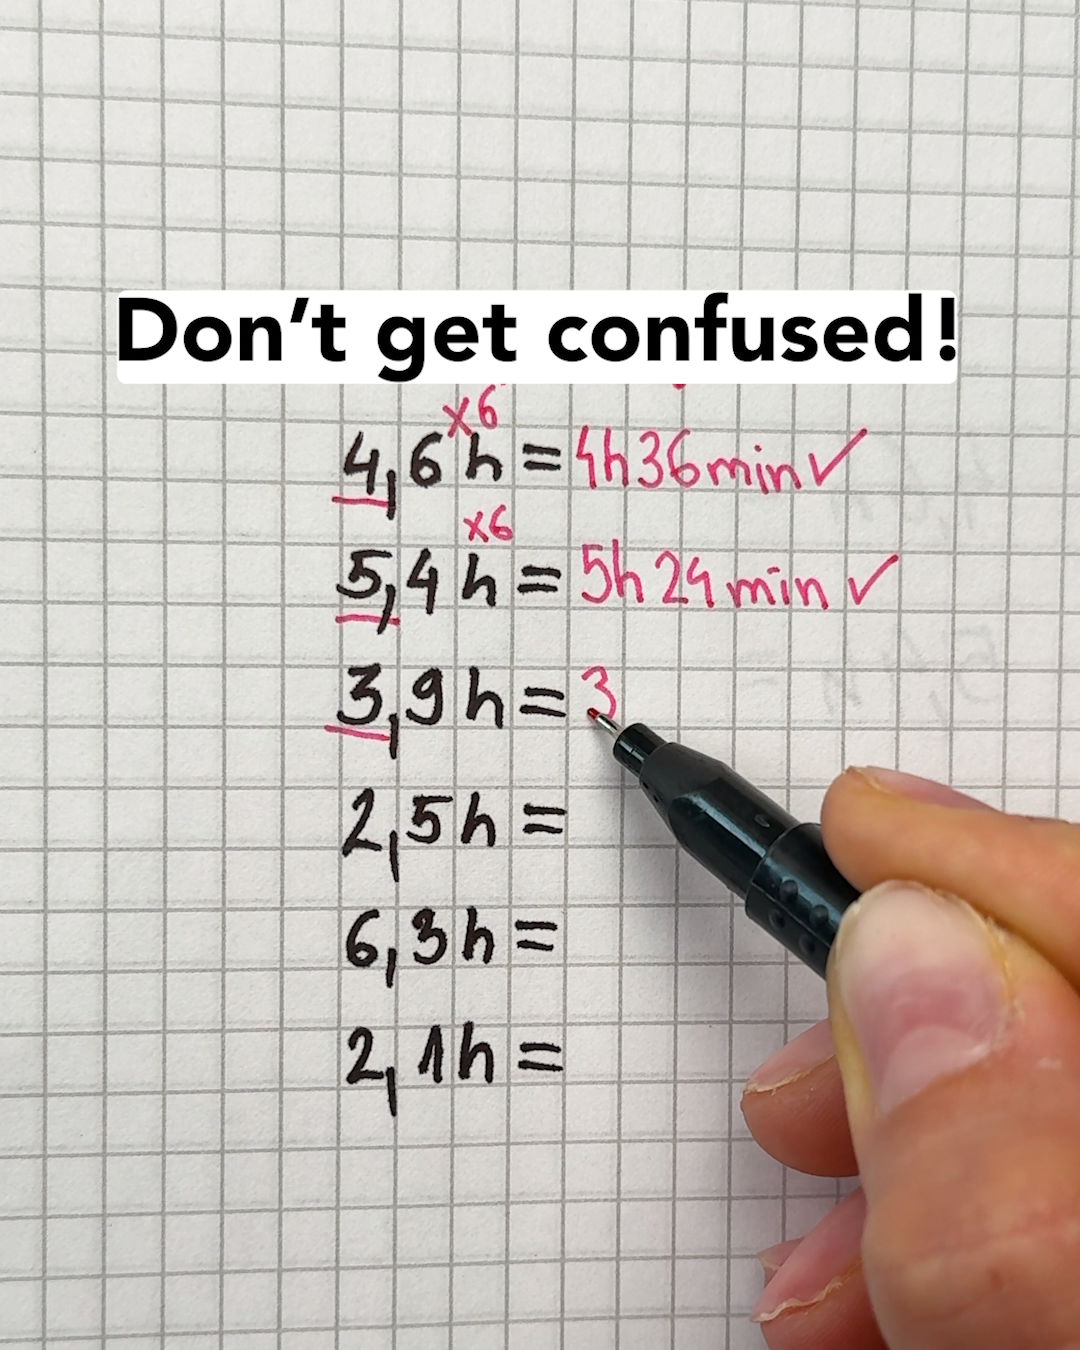 Don't get confused!
x6
4,6h = 4h36min✓
x6
5,4h = 5h24min✓
3,9h = 3
2,5h =
6,3h =
2,1h =